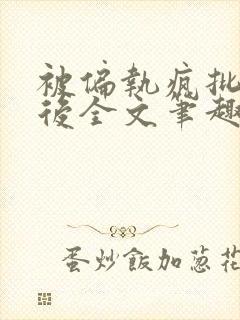 被偏執瘋批
後全文筆趣
蛋炒飯加蔥花